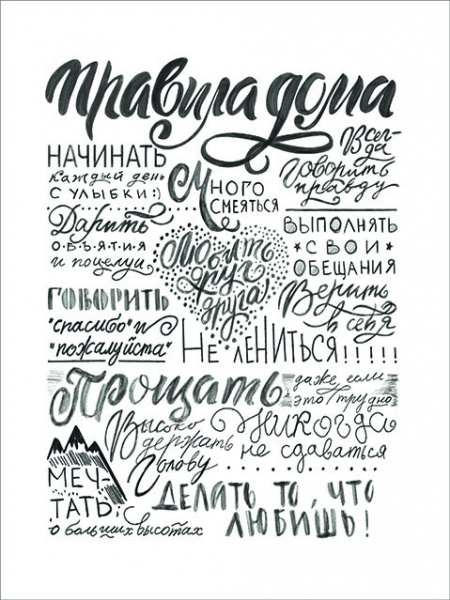 Правила дома
НАЧИНАТЬ
каждый день
С УЛЫБКИ:)
Много
СМЕЯТЬСЯ
Всег-
да
Говорить
правду
Дарить
О·Б·Ъ·Я·Т·И·Я
и поцелуи
Любить
друг
друга
ВЫПОЛНЯТЬ
СВОИ
ОБЕЩАНИЯ
ГОВОРИТЬ
"спасибо" и
"пожалуйста"
Верить
в себя
НЕ ЛЕНИТЬСЯ!!!!!
Прощать
даже если
это трудно
Высоко
держать
Голову
Никогда
не сдаваться
МЕЧ-
ТАТЬ
о больших высотах
ДЕЛАТЬ ТО, ЧТО
ЛЮБИШЬ!